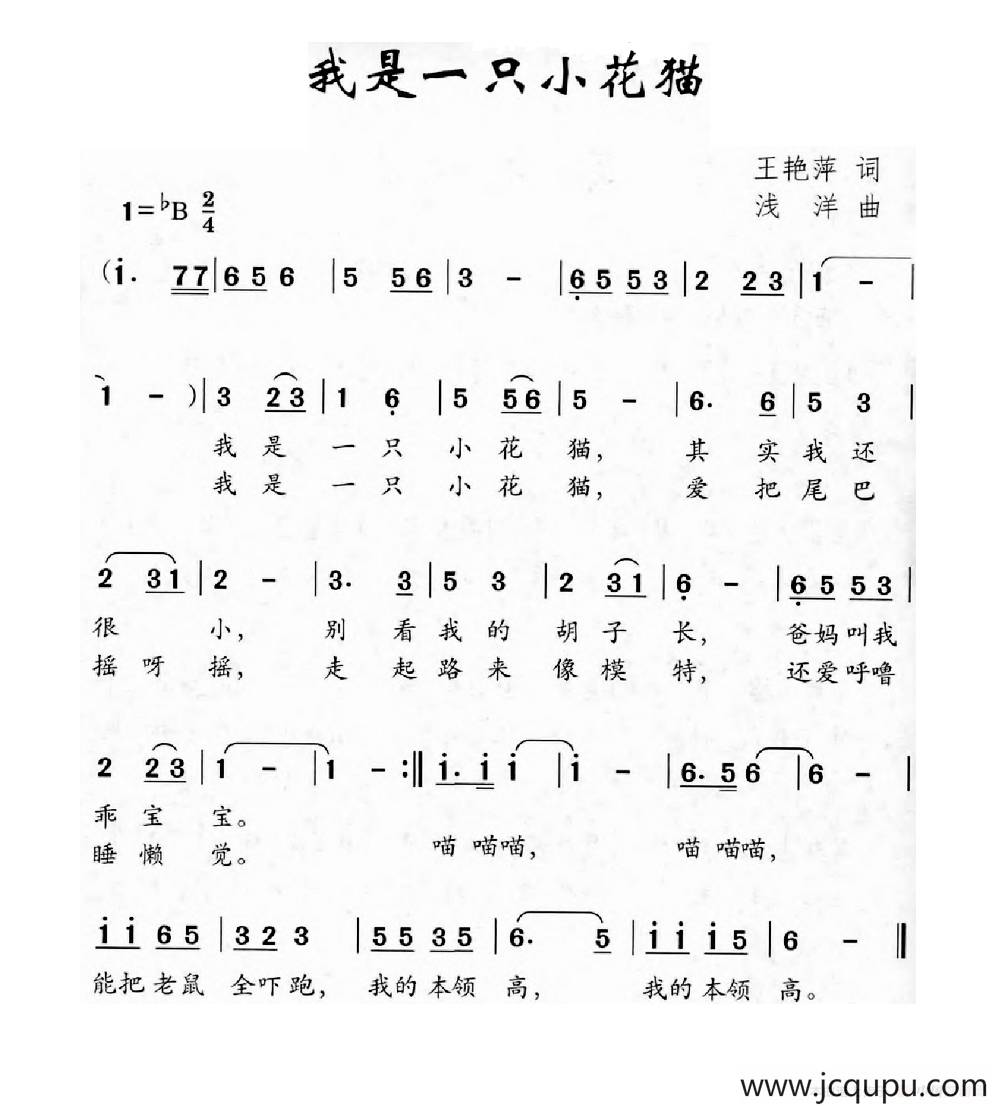 我是一只小花猫
王艳萍 词
浅 洋 曲
1=♭B 2/4
(i. 77|656|5 56|3 -|6553|2 23|1 -|
1 -)|3 23|1 6|5 56|5 -|6. 6|5 3|
我是一只小花猫, 其实我还
我是一只小花猫, 爱把尾巴
2 31|2 -|3. 3|5 3|2 31|6 -|6553|
很小, 别看我的胡子长, 爸妈叫我
摇呀摇, 走起路来像模特, 还爱呼噜
2 23|1 -|1 -:‖i.i i|i -|6.56|6 -|
乖宝宝。
睡懒觉。 喵喵喵, 喵喵喵,
ii65|323|5535|6. 5|iii5|6 -‖
能把老鼠全吓跑, 我的本领高, 我的本领高。
www.jcqupu.com